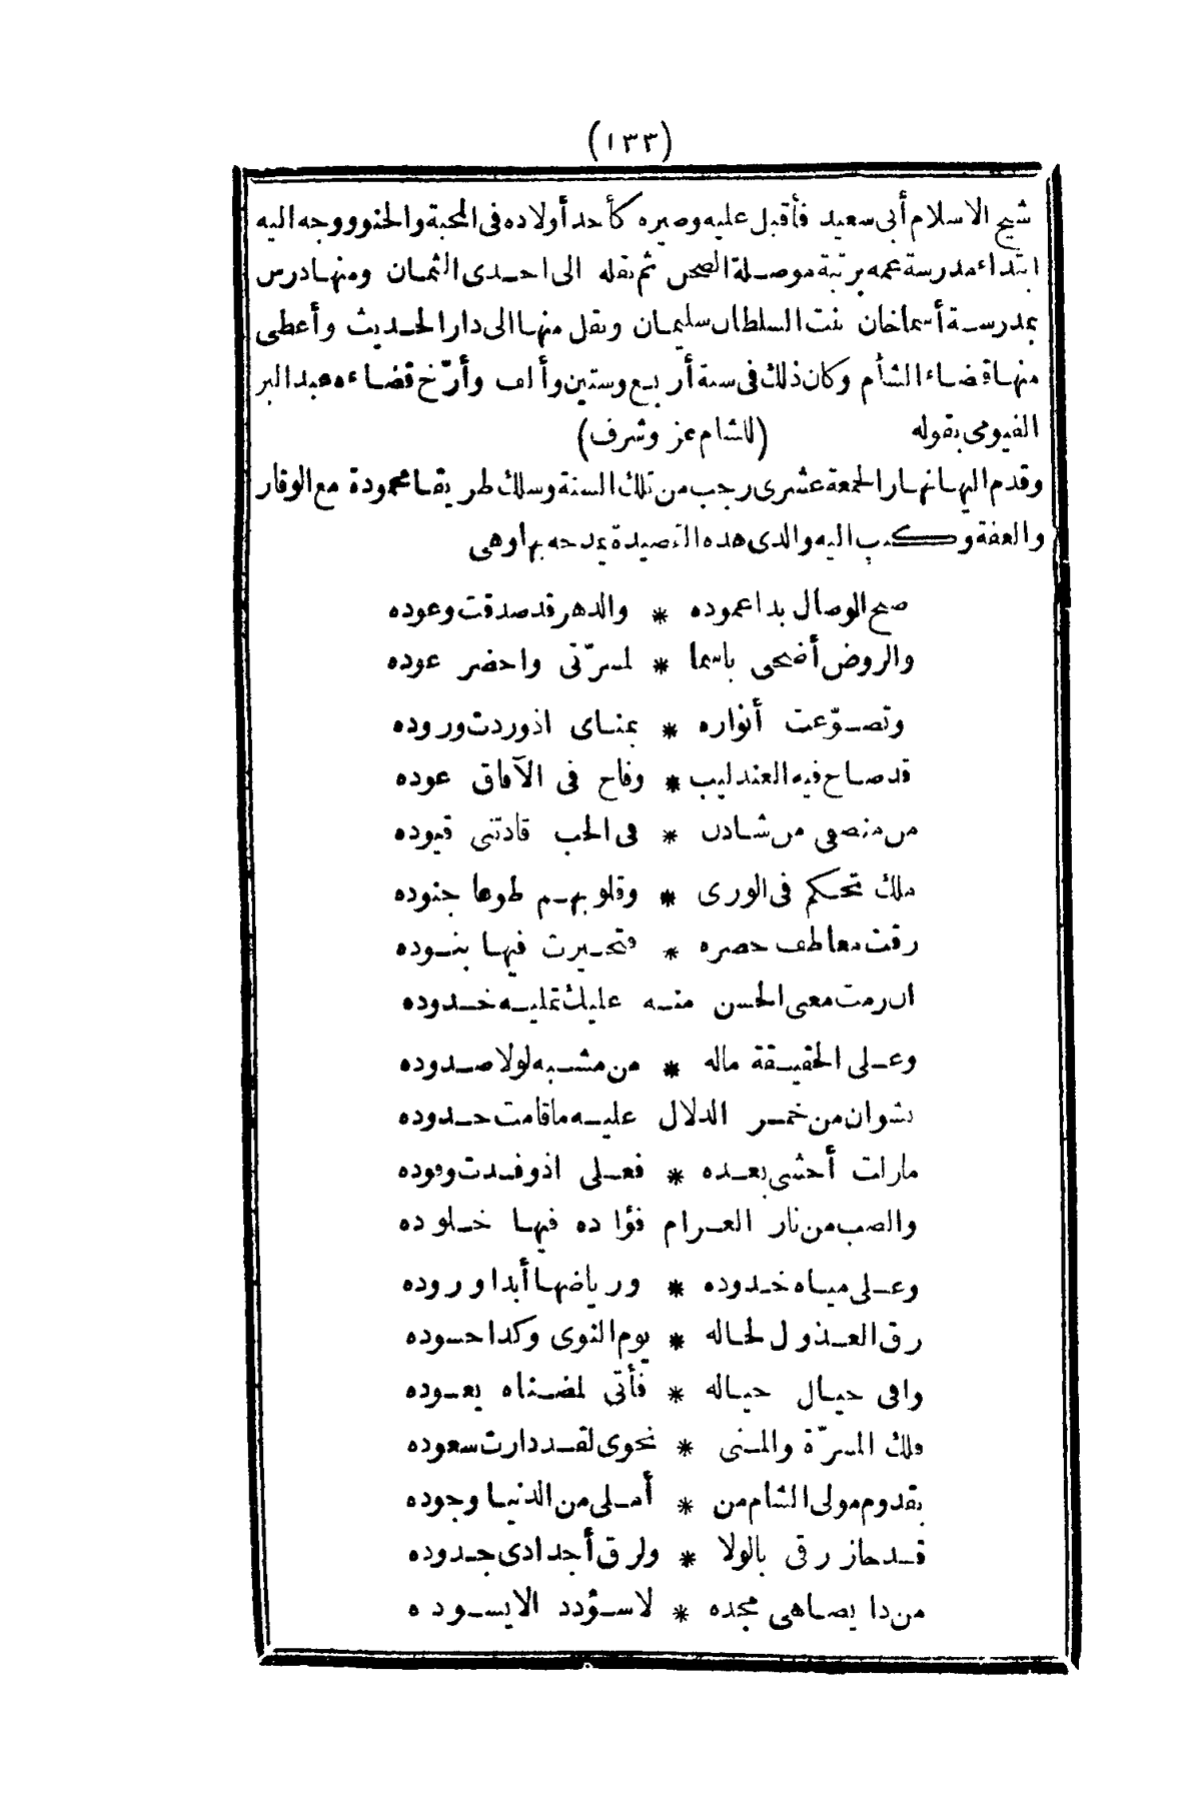 (١٣٣)
شيخ الاسلام أبى سعيد فأقبل عليه وصيره كأحد أولاده فى المحبة والحنو ووجه اليه
ابتداء مدرسة عمه برتبة موصلة الصحن ثم نقله الى احدى الثمان ومنها درس
بمدرسة أسماخان بنت السلطان سليمان ونقل منها الى دار الحديث وأعطى
منها قضاء الشأم وكان ذلك فى سنة أربع وستين وألف وأرّخ قضاءه عبد البر
الفيومى بقوله (للشام عز وشرف)
وقدم اليها نهار الجمعة عشرى رجب من تلك السنة وسلك طريقا محمودة مع الوقار
والعفة وكتب اليه والدى هذه القصيدة يمدحه بها وهى
صح الوصال بدا عموده * والدهر قد صدقت وعوده
والروض أضحى باسما * لمسرّتى واخضر عوده
وتضوّعت أنواره * بمناى اذ وردت وروده
قد صاح فيه العندليب * وفاح فى الآفاق عوده
من منصفى من شادن * فى الحب قادتنى قيوده
ملك تحكم فى الورى * وقلوبهم طوعا جنوده
رقت معاطف خصره * فتحيرت فيها بنوده
ان رمت معنى الحسن منه عليك تمليه خدوده
وعلى الحقيقة ماله * من مشبه لولا صدوده
نشوان من خمر الدلال عليه ما قامت حدوده
مازلت أخشى بعده * فعلى اذ وفدت وفوده
والصب من نار الغرام فؤاده فيها خلوده
وعلى مياه خدوده * ورياضها أبدا وروده
رق العذول لحاله * يوم النوى وكذا حسوده
وافى خيال خياله * فأتى لمضناه يعوده
فلك المسرّة والمنى * نحوى لقد دارت سعوده
بقدوم مولى الشام من * أملى من الدنيا وجوده
قد حاز رقى بالولا * ولرق أجدادى جدوده
من ذا يضاهى مجده * لا سؤدد الا يسوده